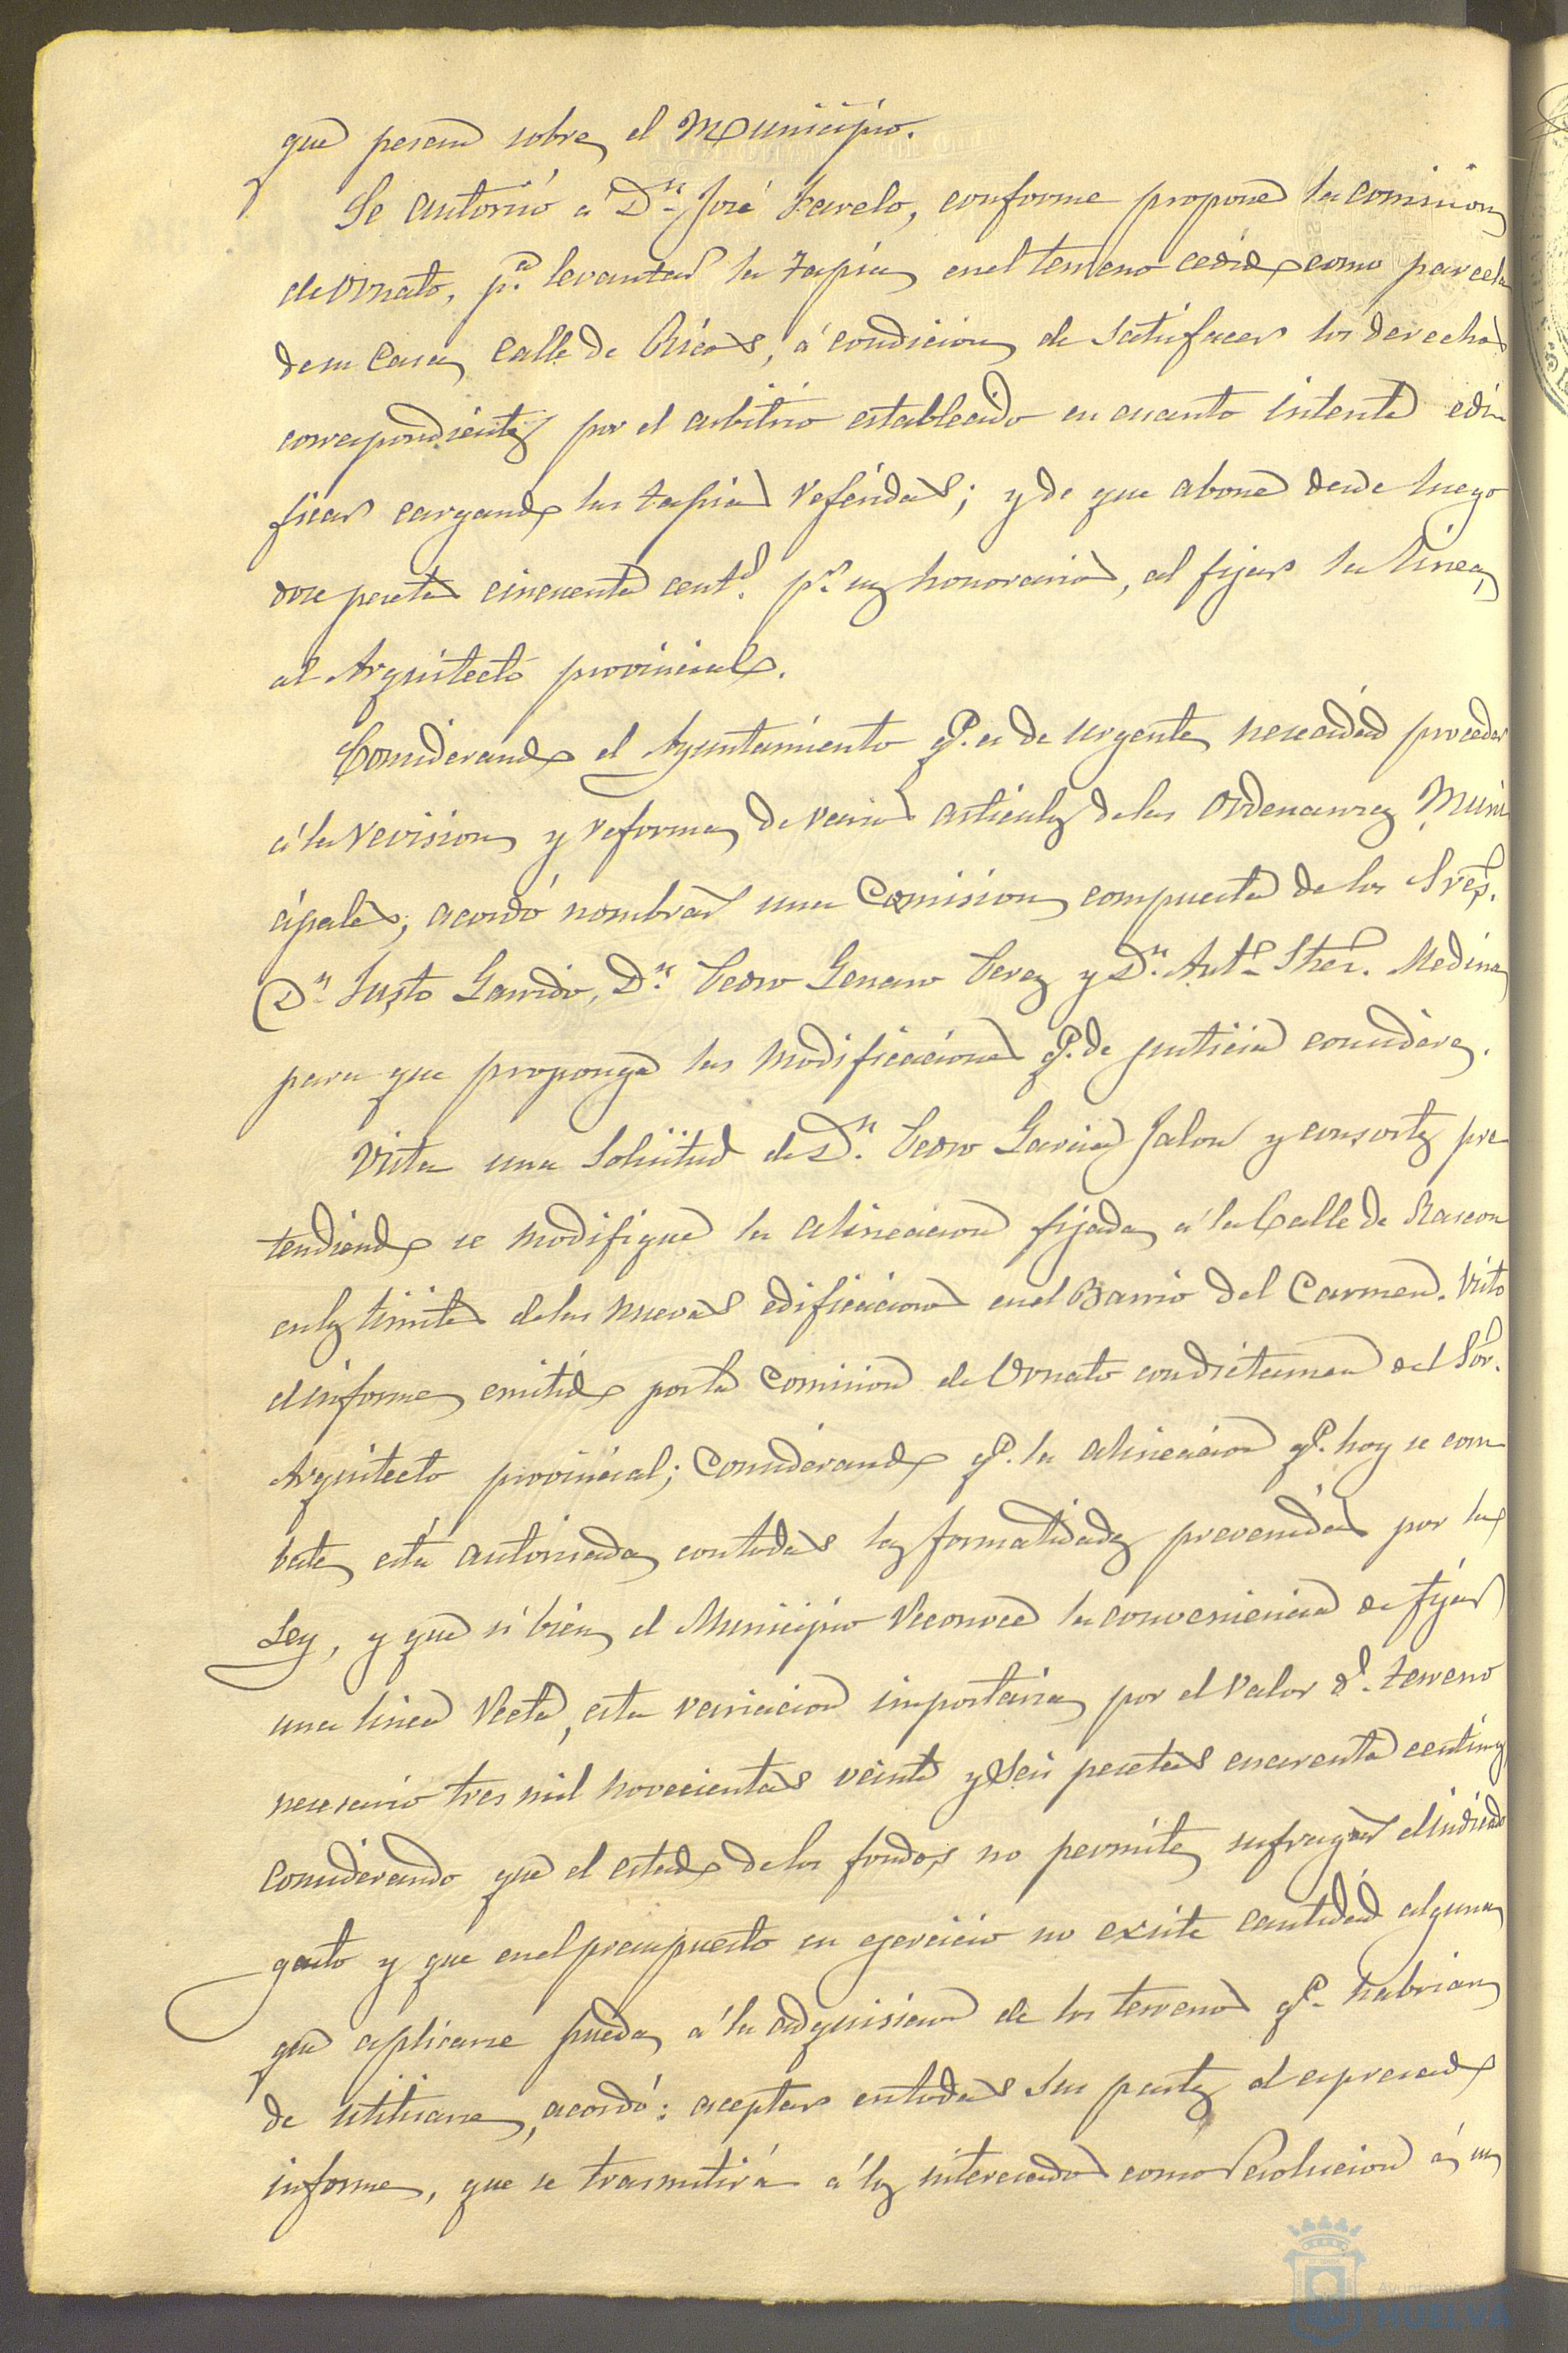 que pesan sobre el Municipio.
Se autorizó á Dn. José Favelo, conforme propone la comision
de Ornato, pa. levantar la tapia en el terreno cedido como parcela
de su casa, calle de Ricos, á condicion de satisfacer los derechos
correspondientes por el arbitrio establecido en cuanto intente edi
ficar cargando las tapias referidas; y de que abone desde luego
doce pesetas cincuenta cents. pr. sus honorarios, al fijar la linea,
al Arquitecto provincial.
Considerando el Ayuntamiento qe. es de urgente necesidad proceder
á la revision y reforma de varios articulos de las Ordenanzas Muni
cipales, acordó nombrar una Comision compuesta de los Sres.
Dn. Justo Garrido, Dn. Pedro Genaro Perez y Dn. Anto. Shez. Medina
para que proponga las modificaciones qe. de justicia considere.
Vista una solicitud de Dn. Pedro Garcia Jalon y consortes pre
tendiendo se modifique la alineacion fijada á la Calle de Rascon
en los limites de las nuevas edificaciones en el Barrio del Carmen. Visto
el informe emitido por la Comision de Ornato con dictamen del Sor.
Arquitecto provincial; Considerando qe. la alineacion qe. hoy se com
bate, está autorizada con todas las formalidades prevenidas por la
Ley, y que si bien el Municipio reconoce la conveniencia de fijar
una linea recta, esta variacion importaria por el valor dl. terreno
necesario tres mil novecientas veinte y seis pesetas cuarenta centimos
considerando que el estado de los fondos no permite sufragar el indicado
gasto y que en el presupuesto en ejercicio no existe cantidad alguna
que aplicarse pueda á la adquisicion de los terrenos qe. habrian
de utilizarse, acordó: aceptar en todas sus partes el expresado
informe, que se trasmitirá á los interesados como resolucion á su
Ayuntamiento
HUELVA